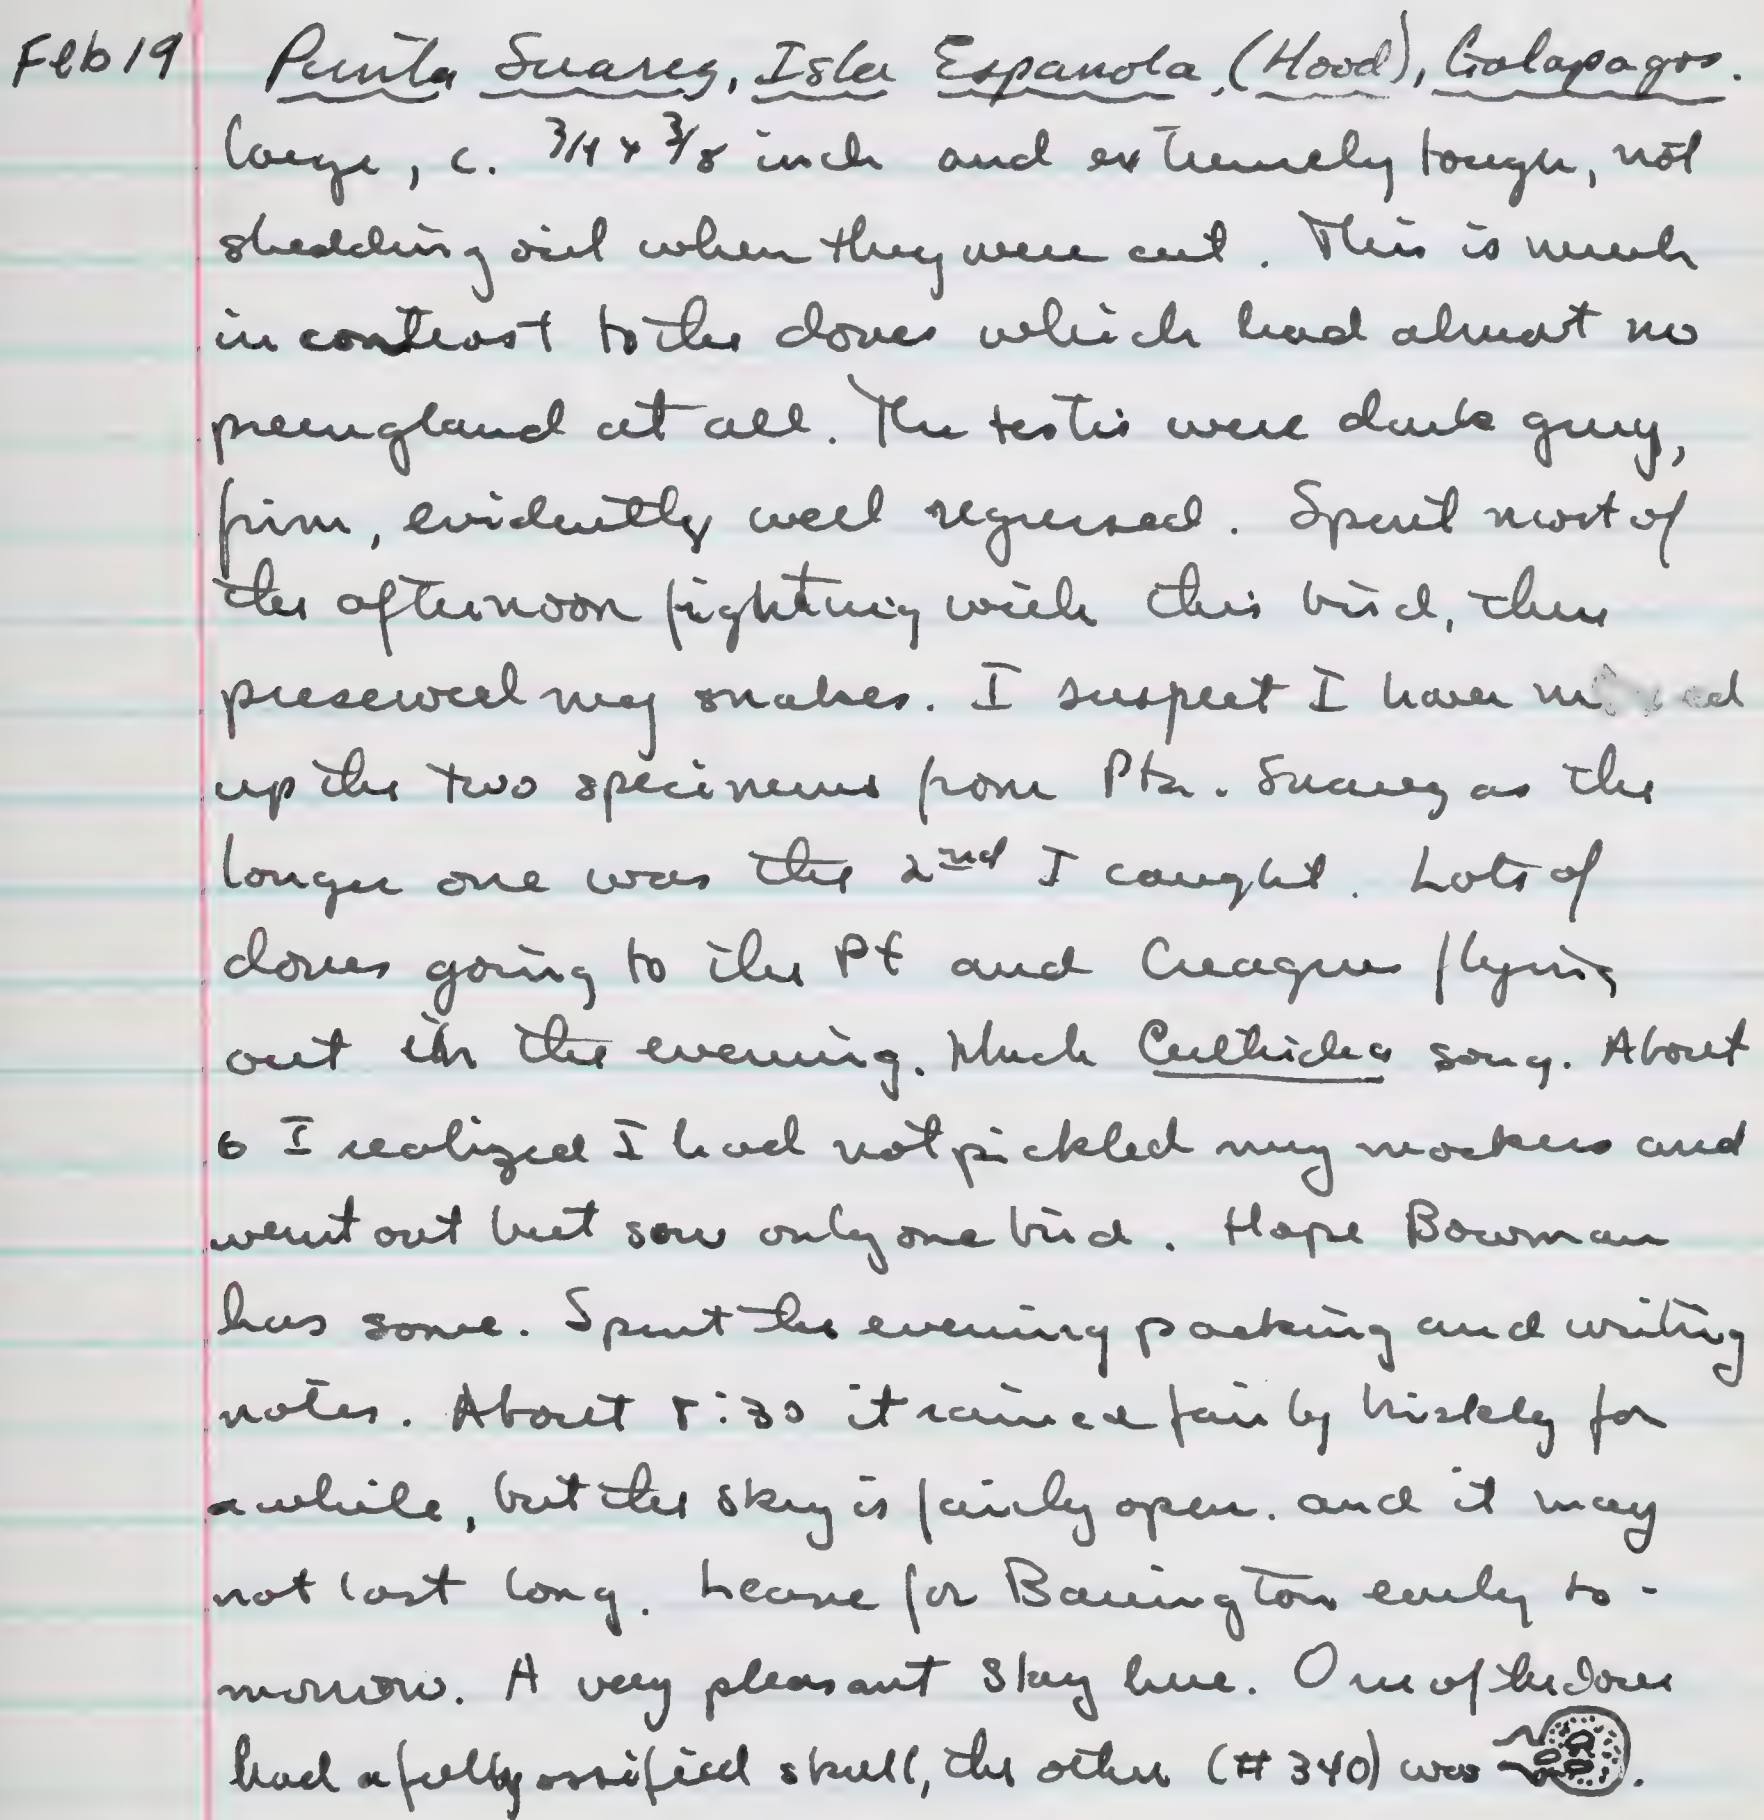 Feb 19 Punta Suarez, Isla Espanola, (Hood), Galapagos.
large, c. 3/4 x 3/8 inch and extremely tough, not
shedding oil when they were cut. This is much
in contrast to the doves which had almost no
preengland at all. The testis were dark grey,
firm, evidently well regressed. Spent most of
the afternoon fighting with this bird, then
preserved my snakes. I suspect I have mixed
up the two specimens from Pta. Suarez as the
longer one was the 2nd I caught. Lots of
doves going to the Pt and Creagrus flying
out in the evening. Much Certhidea song. About
6 I realized I had not pickled my mockers and
went out but saw only one bird. Hope Bowman
has some. Spent the evening packing and writing
notes. About 8:30 it rained fairly briskly for
awhile, but the sky is fairly open. and it may
not last long. Leave for Barrington early to-
morrow. A very pleasant stay here. One of the doves
had a fully ossified skull, the other (# 340) was .